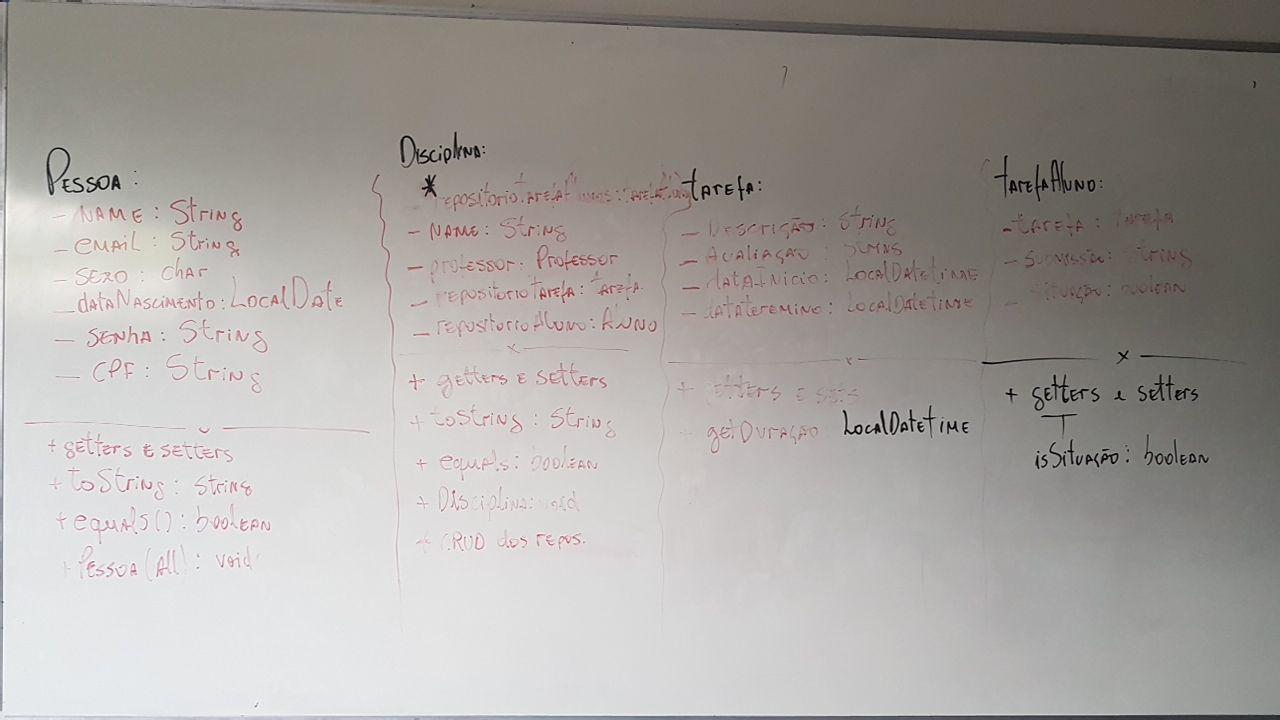 PESSOA:
- NAME: String
- EMAIL: String
- SEXO: char
- dataNascimento: LocalDate
- SENHA: String
- CPF: String
+ getters e setters
+ toString: String
+ equals(): boolean
+ Pessoa(All): void
Disciplina:
*
- NAME: String
- professor: Professor
- repositorioTarefa: tarefa
- repositorioAluno: Aluno
x
+ getters e setters
+ toString: String
+ equals: boolean
+ Disciplina: void
+ CRUD dos repos.
tarefa:
- Descrição: String
- Avaliação: String
- dataInicio: LocalDatetime
- dataTeremino: LocalDatetime
x
+ getters e sets
- getDuração LocalDatetime
tarefaAluno:
- tarefa: tarefa
- submissão: String
- Situação: boolean
x
+ getters e setters
isSituação: boolean